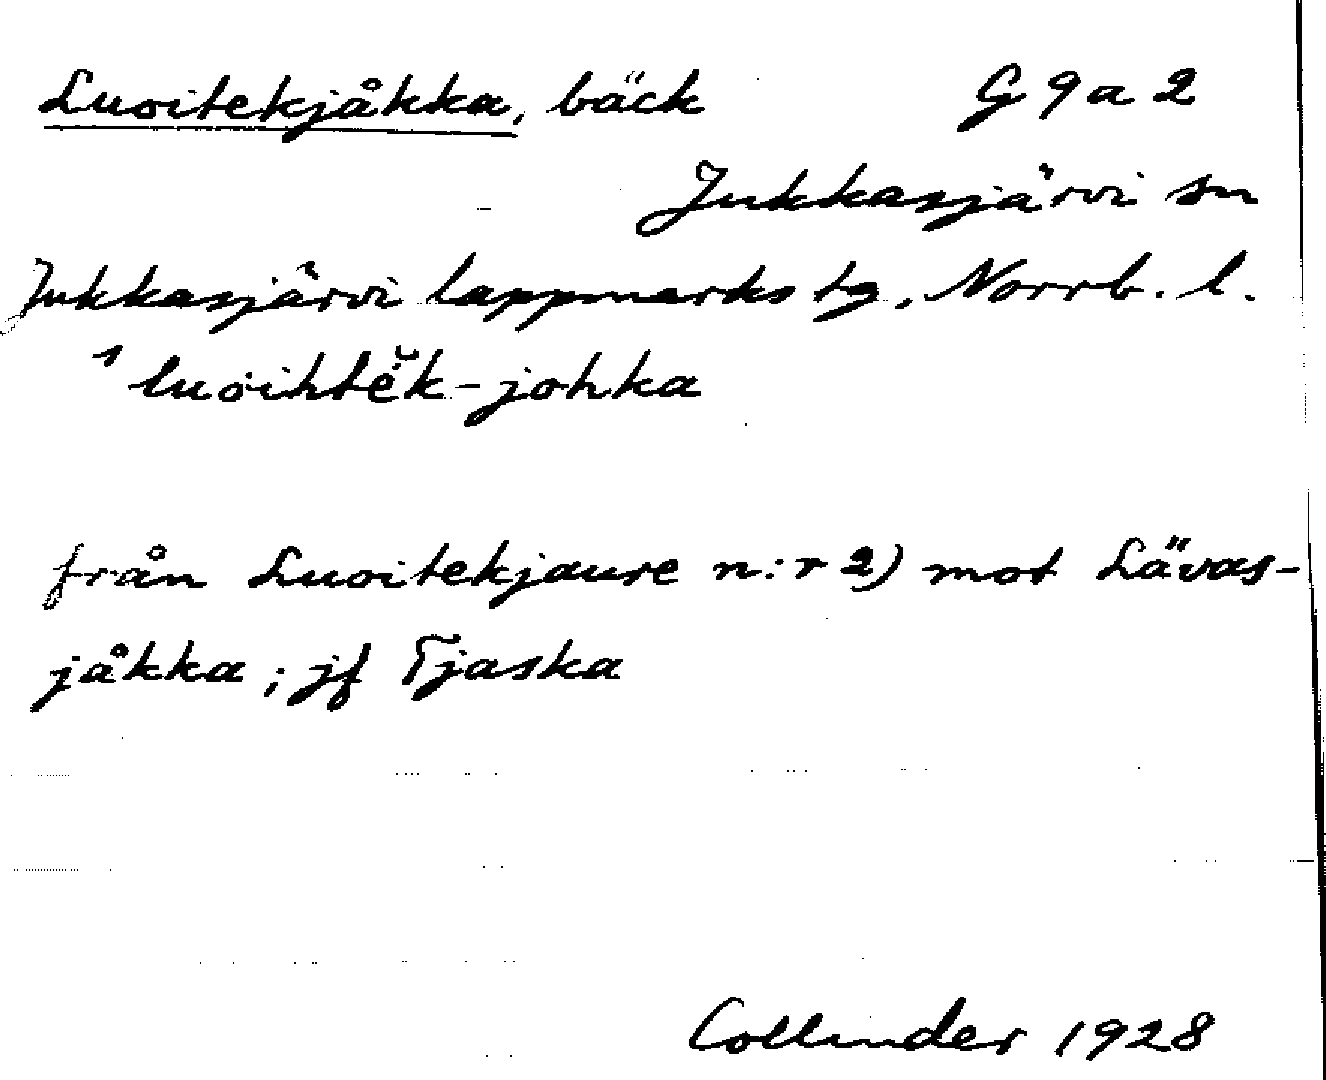 Luoitekjåkka, bäck G 9 a 2
Jukkasjärvi sn
Jukkasjärvi lappmarks tg, Norrb. l.
luoihtĕk-johka
från Luoitekjaure n:r 2) mot Lävas-
jåkka; jf Tjaska
Collinder 1928